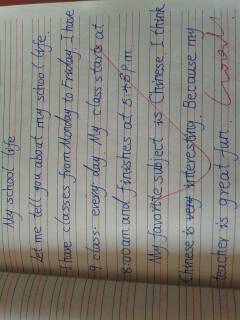 My school life
Let me tell you about my school life.
I have classes from Monday to Friday. I have
9 class. every day. My class starts at
8:00am and finishes at 5:48pm.
My favorite subject is Chinese. I think
Chinese is very interesting. Because my
teacher is great fun.
Good!